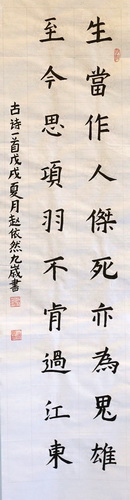 生當作人傑死亦為鬼雄
至今思項羽不肯過江東
古诗一首戊戌夏月赵依然九歲書